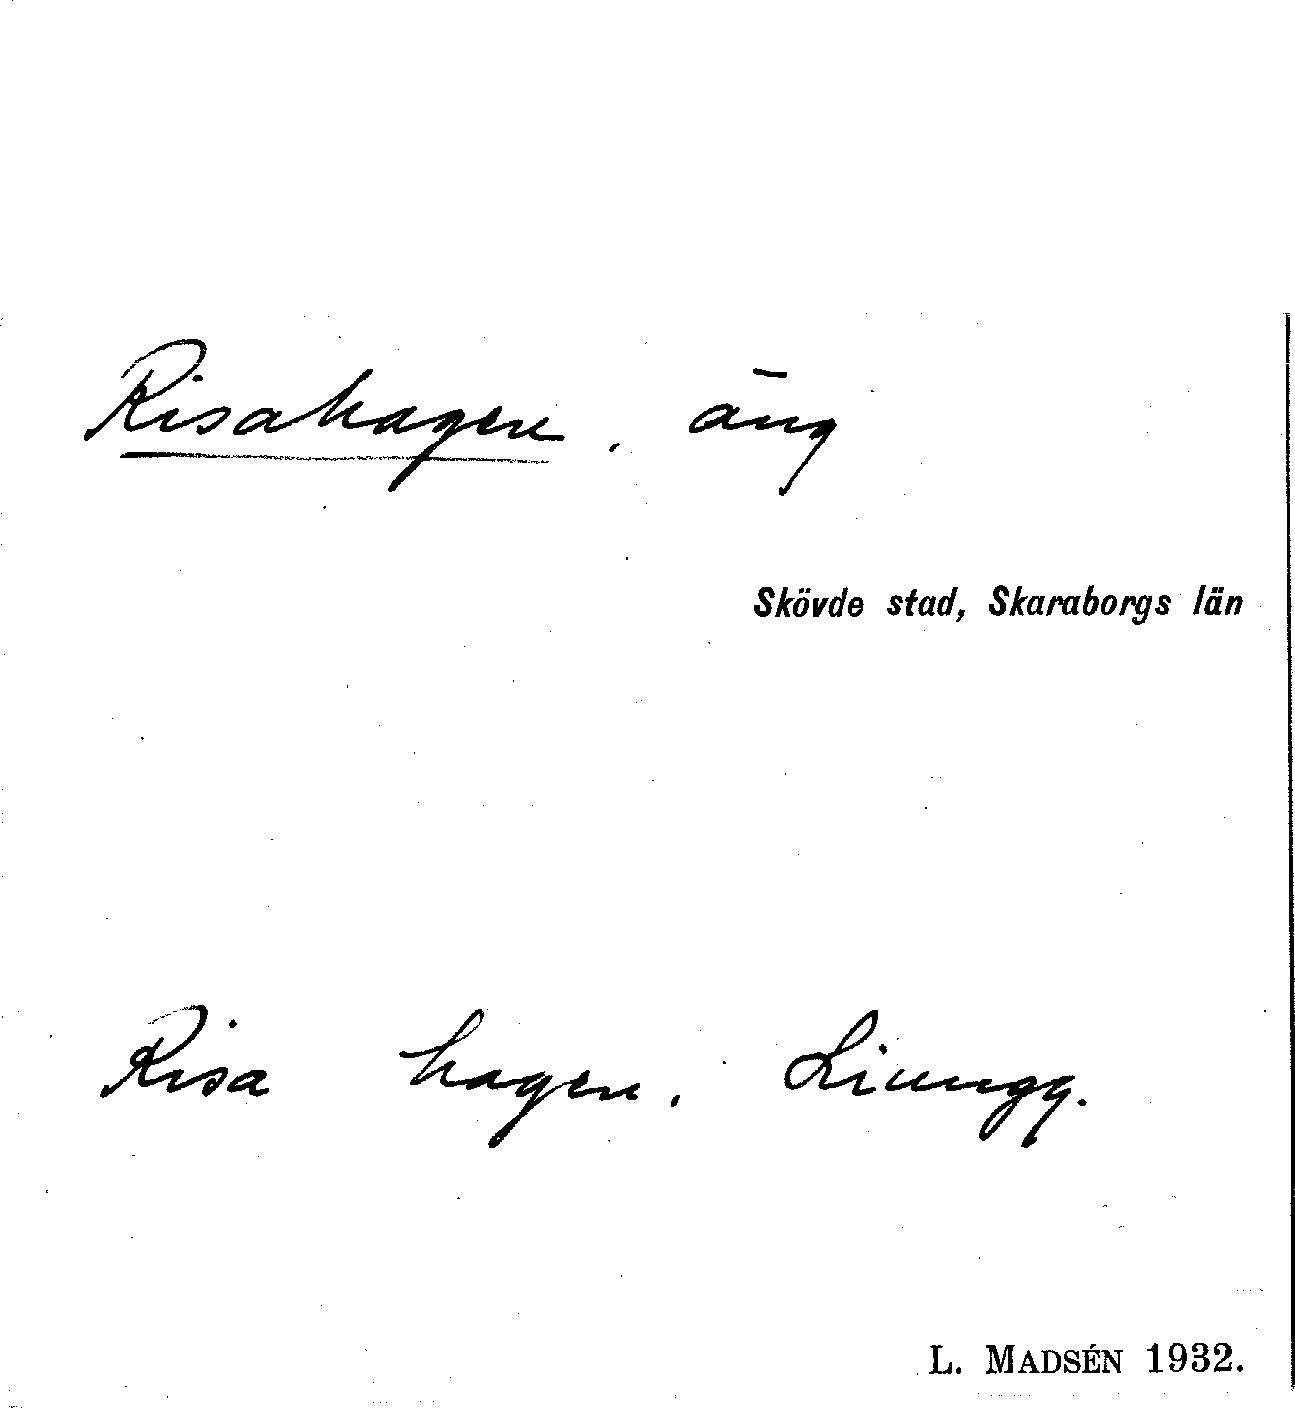 Risahagen, äng
Skövde stad, Skaraborgs län
Risa hagen.
L. MADSÉN 1932.